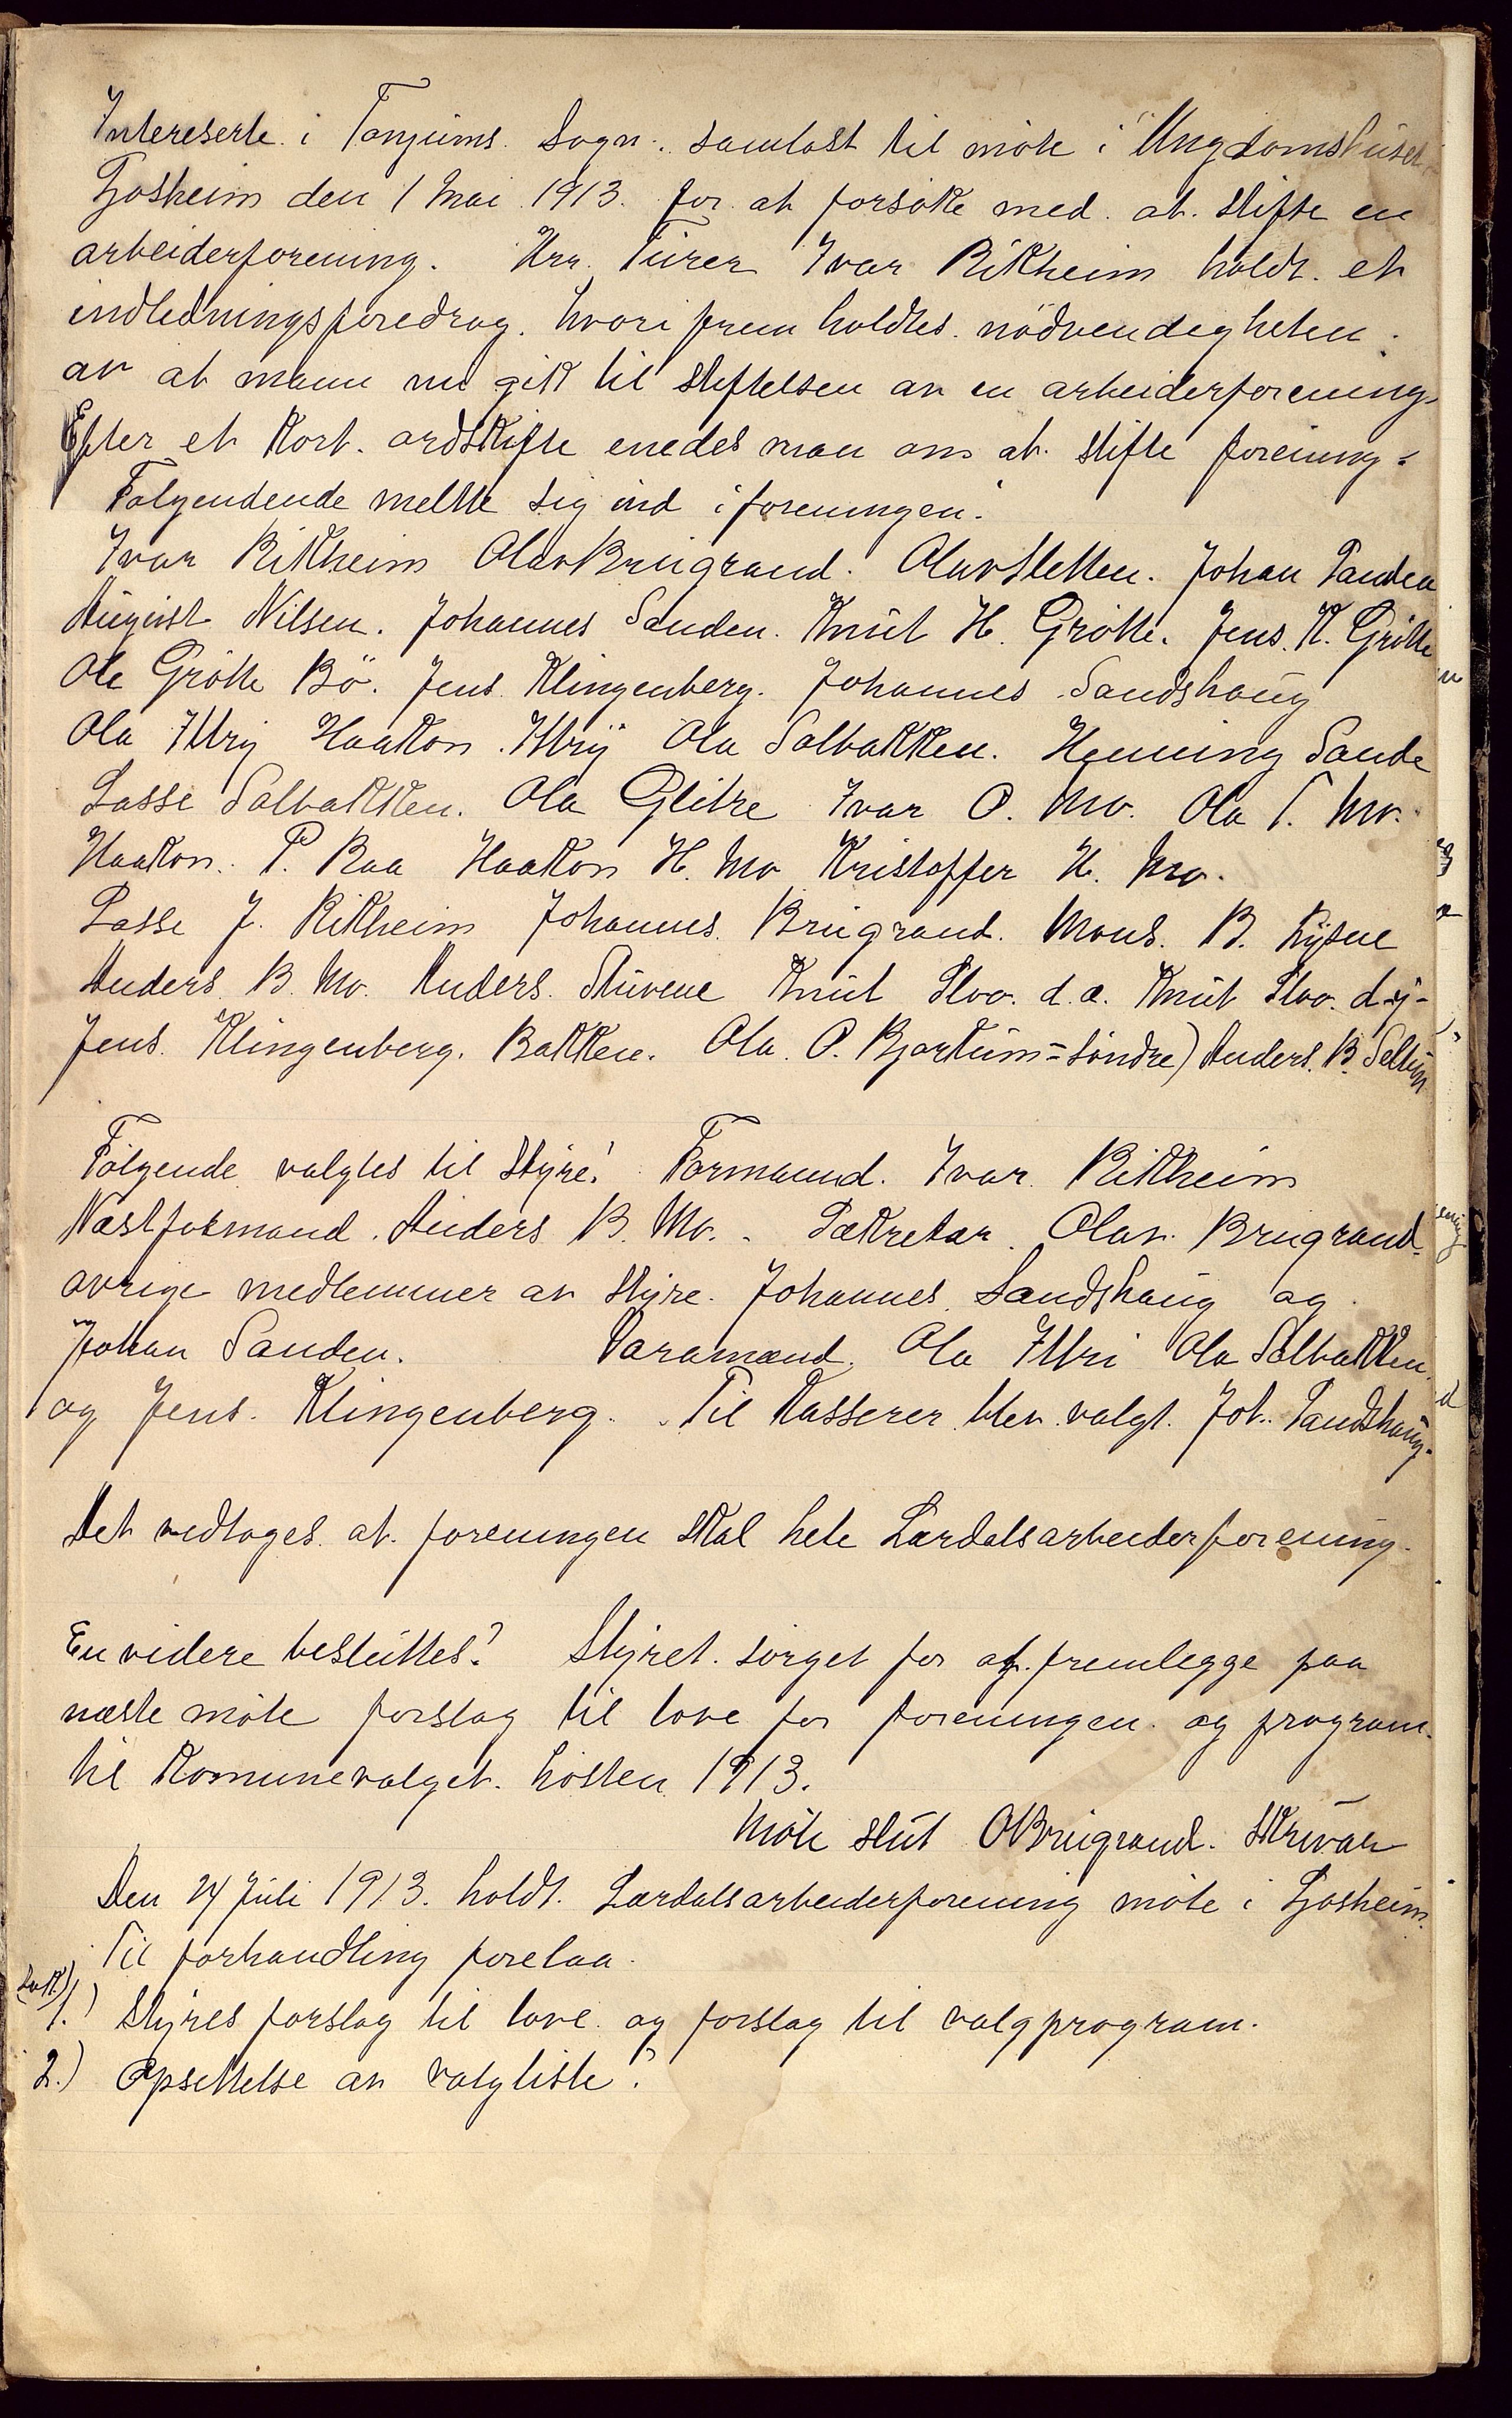 Intereserte i Tønjums Sogn. samlast til møte i "Ungdomshuset
Ljosheim den 1 Mai 1913. for at forsøke med at stifte en
arbeiderforening. Hrr. Furer Ivar Rikheim holdt et
indledningsforedrag. hvori frem holdtes nödvendigheten
av at mann nu gik til stiftelsen av en arbeiderforening.
Efter et kort ordskifte enedes man om at stifte forening.
Følgendende melte sig ind i foreningen.
Ivar Rikheim Olav Brugrand. Olav Sletten. Johan Sanden
August Nilsen. Johannes Sanden. Knut H. Grøtte. Jens K. Grøtte
Ole Grøtte Bö. Jens Klingenberg. Johannes Sandshaug
Ola Ittry Haakon Ittry Ola Solbakken. Henning Sande
Lasse Solbakken. Ola Glitre Ivar O. Mo. Ola T. Mo.
Haakon P. Raa Haakon H. Mo Kristoffer H. Mo.
Lasse J. Rikheim Johannes Brugrand. Mons. B. Rysne
Anders B. Mo. Anders. Stuvene Knut Stoo. d.æ. Knut Stoo. d.y-
Jens Klingenberg. Bakken. Ola O. Bjørkum=söndre) Anders. B. Seltun
Følgende valgtes til Styre! Formannd. Ivar Rikheim
Næstformand. Anders B. Mo. Sækretær Olav Brugrand.
øvrige medlemmer av styre. Johannes Sandshaug og
Johan Sanden. Varamænd. Ola Ittri Ola Solbakken
og Jens Klingenberg. Til Kasserer blev valgt. Joh. Sandshaug.
Det vedtoges at foreningen skal hete Lærdalsarbeiderforening.
En videre besluttes? Styret sörget for at fremlegge paa
næste møte forslag til love for foreningen og program.
til Komunevalget høsten 1913.
Møte slut OBrugrand. Skrivar
Den 24 Juli 1913. holdt Lærdalsarbeiderforening møte i Ljosheim.
Til forhandling forelaa.
1.) Styres forslag til love og forslag til valgprogram.
2.) Opsettelse av valgliste?